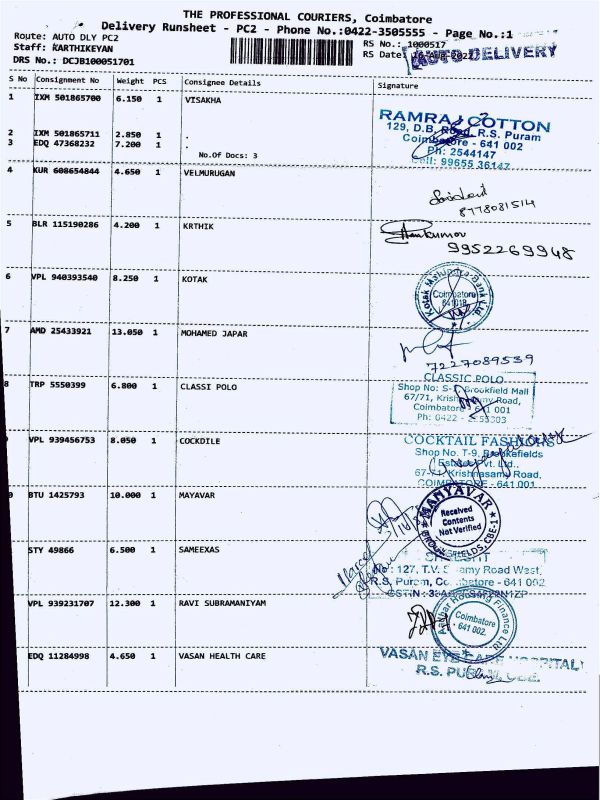 THE PROFESSIONAL COURIERS, Coimbatore
Delivery Runsheet - PC2 - Phone No.:0422-3505555 - Page No.:1
Route: AUTO DLY PC2
Staff: KARTHIKEYAN
DRS No.: DCJB100051701
RS No.: 1000517
RS Date:
AUTO DELIVERY
S No Consignment No Weight PCS Consignee Details Signature
1 IXM 501865700 6.150 1 VISAKHA
2 IXM 501865711 2.850 1 .
3 EDQ 47368232 7.200 1 .
No.Of Docs: 3
RAMRAJ COTTON
129, D.B. Road, R.S. Puram
Coimbatore - 641 002
Ph: 2544147
Cell: 99655 36147
4 KUR 608654844 4.650 1 VELMURUGAN
8778081514
5 BLR 115190286 4.200 1 KRTHIK
9952269948
6 VPL 940393540 8.250 1 KOTAK
Kotak Mahindra Bank Ltd
Coimbatore
7 AMD 25433921 13.050 1 MOHAMED JAPAR
7227089539
8 TRP 5550399 6.800 1 CLASSI POLO
CLASSIC POLO
Shop No: Brookfield Mall
67/71, Road,
Coimbatore - 641 001
Ph: 0422 -
VPL 939456753 8.050 1 COCKDILE
COCKTAIL FASHIONS
Shop No. T-9, Brookefields
Estates Pvt. Ltd.,
67-71, Krishnasamy Road,
COIMBATORE - 641 001
BTU 1425793 10.000 1 MAYAVAR
MANYAVAR
Received
Contents
Not Verified
BROOKEFIELDS, CBE-1
STY 49866 6.500 1 SAMEEXAS
No: 127, T.V. Road West,
R.S. Puram, Coimbatore - 641 002
GSTIN :
VPL 939231707 12.300 1 RAVI SUBRAMANIYAM
Aadhar Housing Finance Ltd
Coimbatore
641 002.
EDQ 11284998 4.650 1 VASAN HEALTH CARE
VASAN EYE CARE HOSPITAL
R.S. PURAM, CBE.